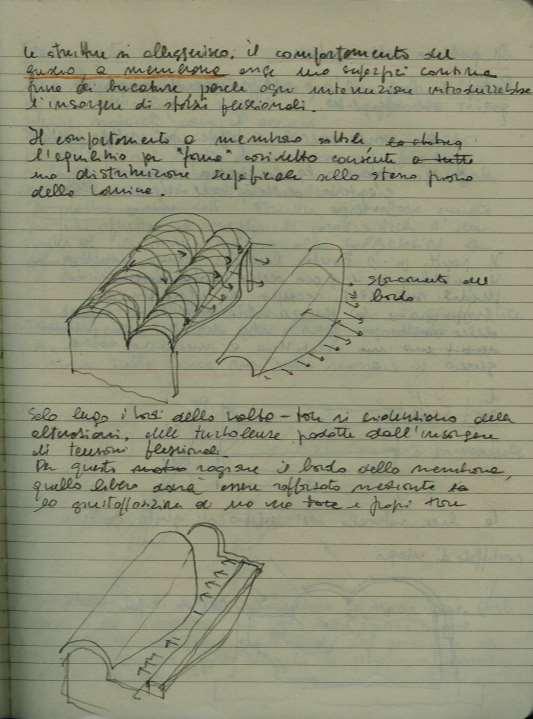 le strutture si alleggeriscono. il comportamento del
guscio, a membrana esige una superfici continua
priva di bucature perché ogni interruzione introdurrebbe
l'insorgere di sforzi flessionali.
Il comportamento a membrana sottile
l'equilibrio per "forma" cosidetto consente a tutto
una distribuzione superficiale sullo stesso piano
della lamina.
sforzamento del
bordo
Solo lungo i bordi della volta - trave si evidenziano delle
alterazioni, delle turbolenze prodotte dall'insorgere
di tensioni flessionali.
Per questa ragione il bordo della membrana,
quello libero dovrà essere rafforzato mediante
la giustapposizione di una vera e propri trave